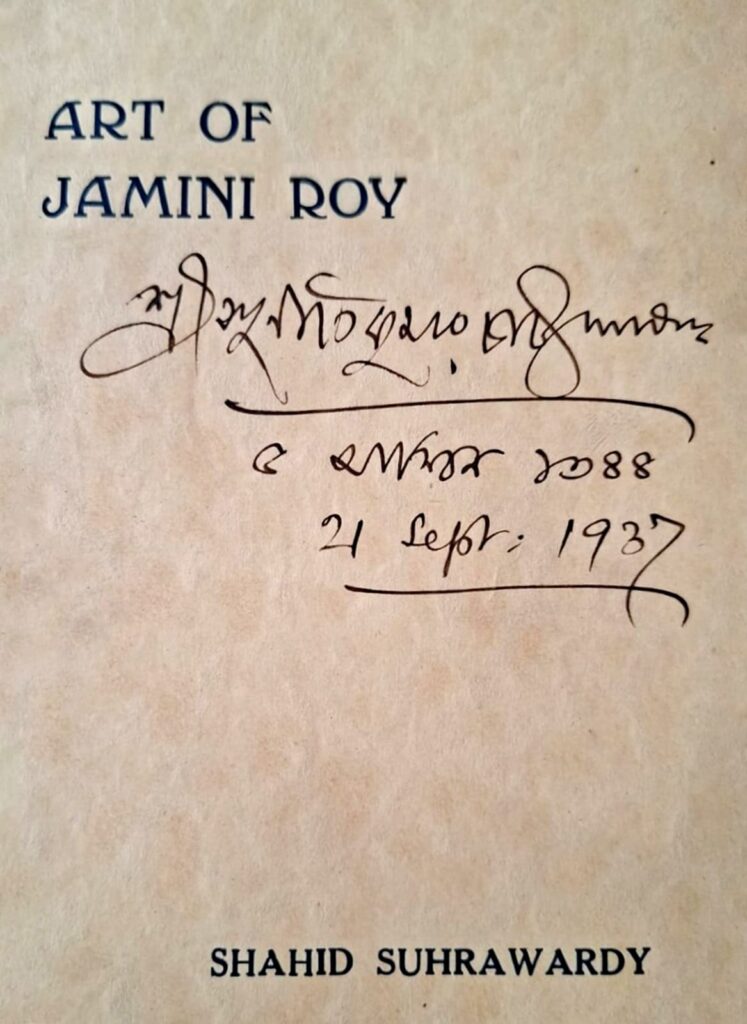 ART OF
JAMINI ROY
শ্রীসুনীতিকুমার চট্টোপাধ্যায়
৫ আশ্বিন ১৩৪৪
21 Sept: 1937
SHAHID SUHRAWARDY